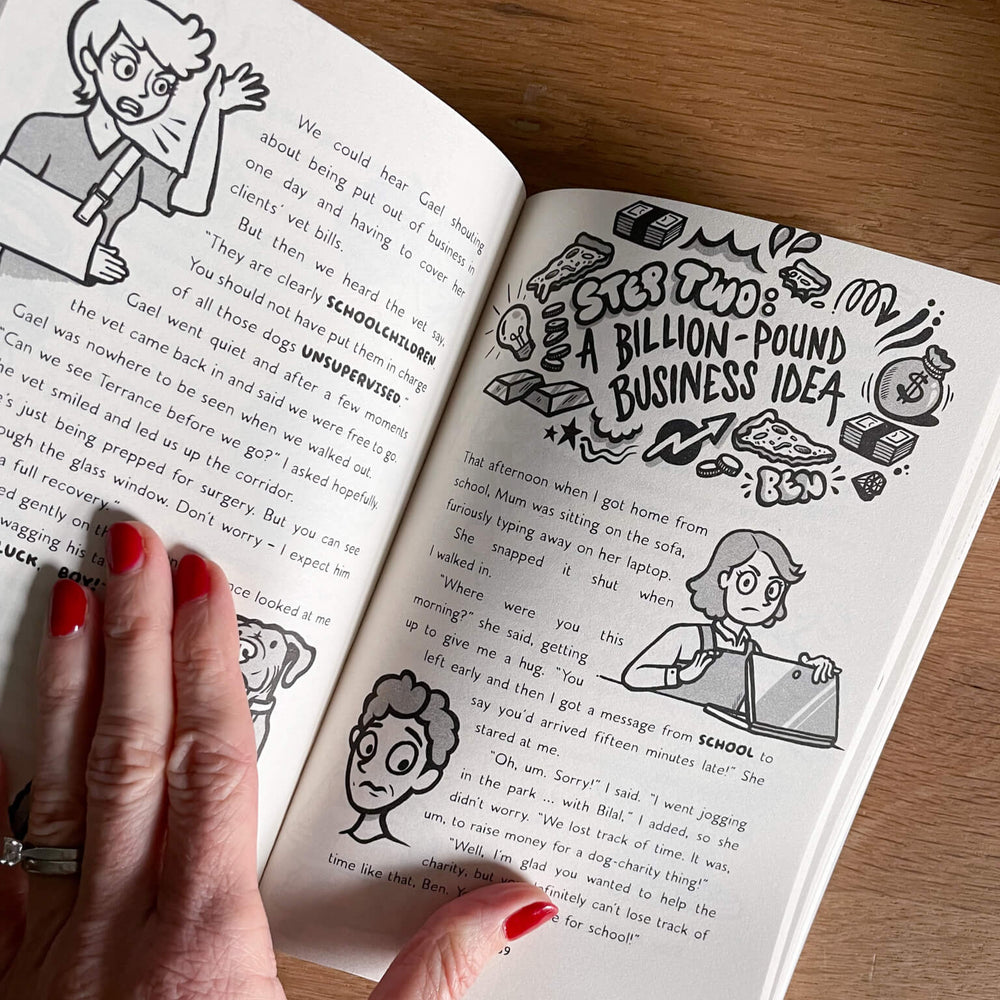 We could hear Gael shouting
about being put out of business in
one day and having to cover her
clients' vet bills.
But then we heard the vet say,
"They are clearly SCHOOLCHILDREN
You should not have put them in charge
of all those dogs UNSUPERVISED."
Gael went quiet and after a few moments
the vet came back in and said we were free to go.
Gael was nowhere to be seen when we walked out.
"Can we see Terrance before we go?" I asked hopefully.
vet smiled and led us up the corridor.
just being prepped for surgery. But you can see
through the glass window. Don't worry – I expect him
a full recovery."
looked at me
gently on
wagging his
LUCK, BOY!"
STEP TWO:
A BILLION-POUND
BUSINESS IDEA
BEN
That afternoon when I got home from
school, Mum was sitting on the sofa,
furiously typing away on her laptop.
She snapped it shut when
I walked in.
"Where were you this
morning?" she said, getting
up to give me a hug. "You
left early and then I got a message from SCHOOL to
say you'd arrived fifteen minutes late!" She
stared at me.
"Oh, um. Sorry!" I said. "I went jogging
in the park ... with Bilal," I added, so she
didn't worry. "We lost track of time. It was,
um, to raise money for a dog-charity thing!"
"Well, I'm glad you wanted to help the
charity, but definitely can't lose track of
time like that, Ben. for school!"